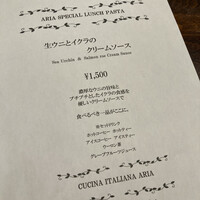 ARIA SPECIAL LUNCH PASTA
生ウニとイクラの
クリームソース
Sea Urchin & Salmon roe Cream Sauce
¥1,500
濃厚なウニの旨味と
プチプチとしたイクラの食感を
優しいクリームソースで
食べるべき一品がここに。
※セットドリンク
ホットコーヒー ホットティー
アイスコーヒー アイスティー
ウーロン茶
グレープフルーツジュース
CUCINA ITALIANA ARIA